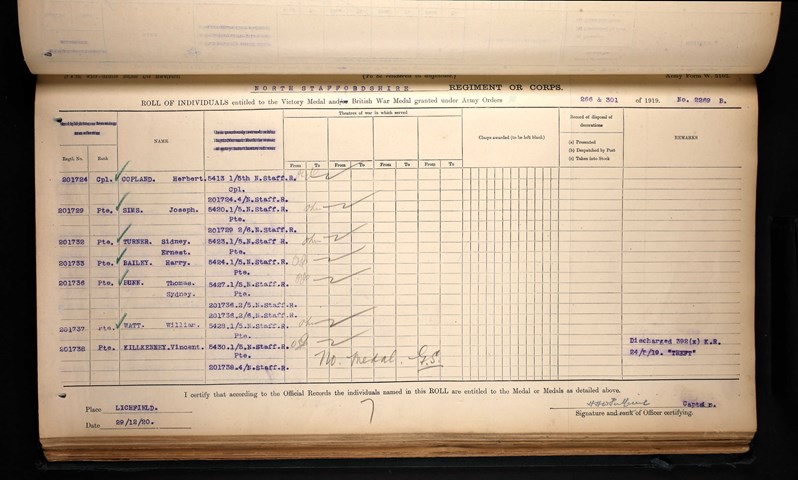 NORTH STAFFORDSHIRE REGIMENT OR CORPS.
ROLL OF INDIVIDUALS entitled to the Victory Medal and/or British War Medal granted under Army Orders 266 & 301 of 1919. No. 2269 B.
Theatres of war in which served
Record of disposal of decorations
Clasps awarded (to be left blank)
(a) Presented
(b) Despatched by Post
(c) Taken into Stock
REMARKS
Regtl. No. Rank NAME
From To From To From To From To
201724 Cpl. COPLAND. Herbert. 5413 1/5th N.Staff.R.
Cpl.
201724.4/N.Staff.R.
201729 Pte. SIMS. Joseph. 5420.1/5.N.Staff.R.
Pte.
201729 2/6.N.Staff.R.
201732 Pte. TURNER. Sidney. 5423.1/5.N.Staff R.
Ernest. Pte.
201733 Pte. BAILEY. Harry. 5424.1/5.N.Staff.R.
Pte.
201736 Pte. Thomas. 5427.1/5.N.Staff.R.
Sydney. Pte.
201736.2/5.N.Staff.R.
201736.2/6.N.Staff.R.
201737 Pte. WATT. William. 5428.1/5.N.Staff.R.
Pte.
201738 Pte. KILLKENNY. Vincent. 5430.1/5.N.Staff.R. Discharged 392(x) K.R.
Pte. No. medal. G.S. "THEFT"
201738.4/N.Staff.R.
I certify that according to the Official Records the individuals named in this ROLL are entitled to the Medal or Medals as detailed above.
Place LICHFIELD. Captain.
Signature and rank of Officer certifying.
Date 29/12/20.